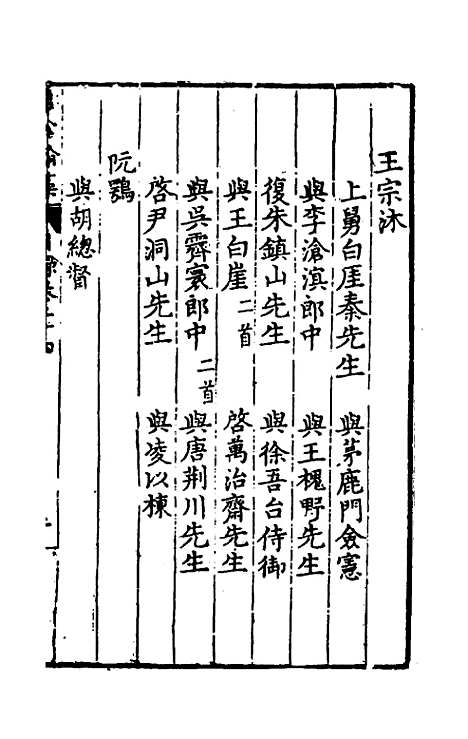 王宗沐
上舅白厓秦先生 與茅鹿門僉憲
與李滄溟郎中 與王槐野先生
復朱鎮山先生 與徐吾台侍御
與王白崖二首 啓萬治齋先生
與吳霽寰郎中二首 與唐荆川先生
啓尹洞山先生 與凌以棟
阮鶚
與胡總督